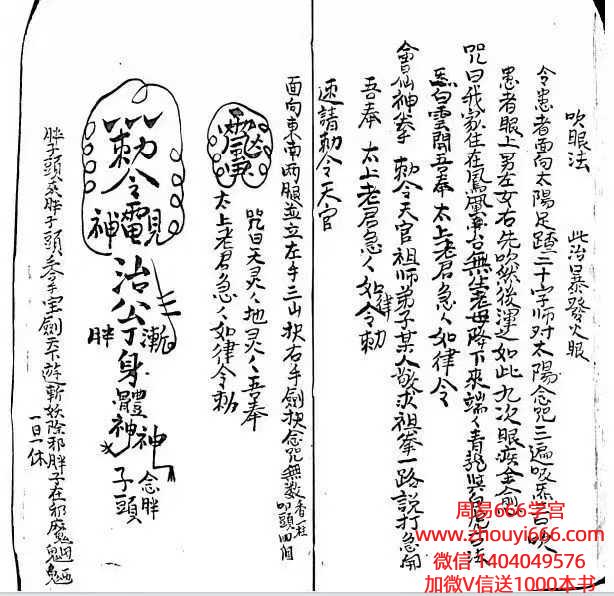 吹眼法　　此治暴發火眼
令患者面向太陽足踏二十字師对太陽念咒三遍吸炁一口吹
患者眼上男左女右先吹然後運之如此九次眼疾全愈
咒曰我家住在鳳凰台無生老母降下來端々青龍與白虎
炁白雲間吾奉太上老君急々如律令
會仙神拳　勅令天官祖師弟子某人敬求祖拳一路説打急開
吾奉　太上老君急々如律令勅
速請勅令天官
面向東南两腿並立左手三山抉右手劍抉念咒無数香一柱叩頭四個
靈
咒曰天灵々地灵々吾奉
太上老君急々如律令勅
勅令
神
治公身體
胖
漸
神
神
念胖
子頭
胖子頭來胖子頭手宝劍天下遊斬妖除邪胖子在邪魔魍魎
一日一休
周易666学宫
www.zhouyi666.com
微信1404049576
加微V信送1000本书